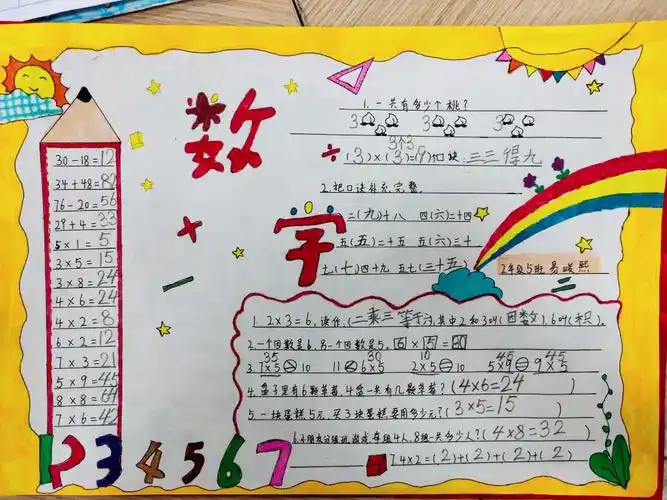 数字
30-18=12
34+48=82
76-20=56
29+4=33
5×1=5
3×5=15
3×8=24
4×6=24
4×2=8
6×2=12
7×3=21
5×9=45
8×8=64
7×6=42
1.一共有多少个桃?
3 3 3
3个3
÷(3)×(3)=(9)口诀:三三得九
2.把口诀补充完整。
二(九)十八 四(六)二十四
五(五)二十五 五(六)三十
七(七)四十九 五七(三十五)
2年级5班
1. 2×3=6,读作:(二乘三等于六),其中2和3叫(因数),6叫(积).
2.一个因数是6,另一个因数是5, 6×5=30
35 30 10 45 45
3. 7×5>10 11<6×5 2×5=10 5×9=9×5
4.盘子里有6颗草莓,4盘一共有几颗草莓?(4×6=24)
5.一块蛋糕5元,买3块蛋糕要用多少元?(3×5=15)
6.小朋友分组玩游戏,每组4人,8组一共多少人?(4×8=32)
7. 4×2=(2)+(2)+(2)+(2)
1 2 3 4 5 6 7